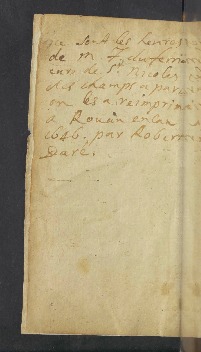 ce sont les heures
de m
eurs de St Nicolas
des champs a paris
on les a reimprimé
a Rouen en lan
1646. par Robert
Daré.